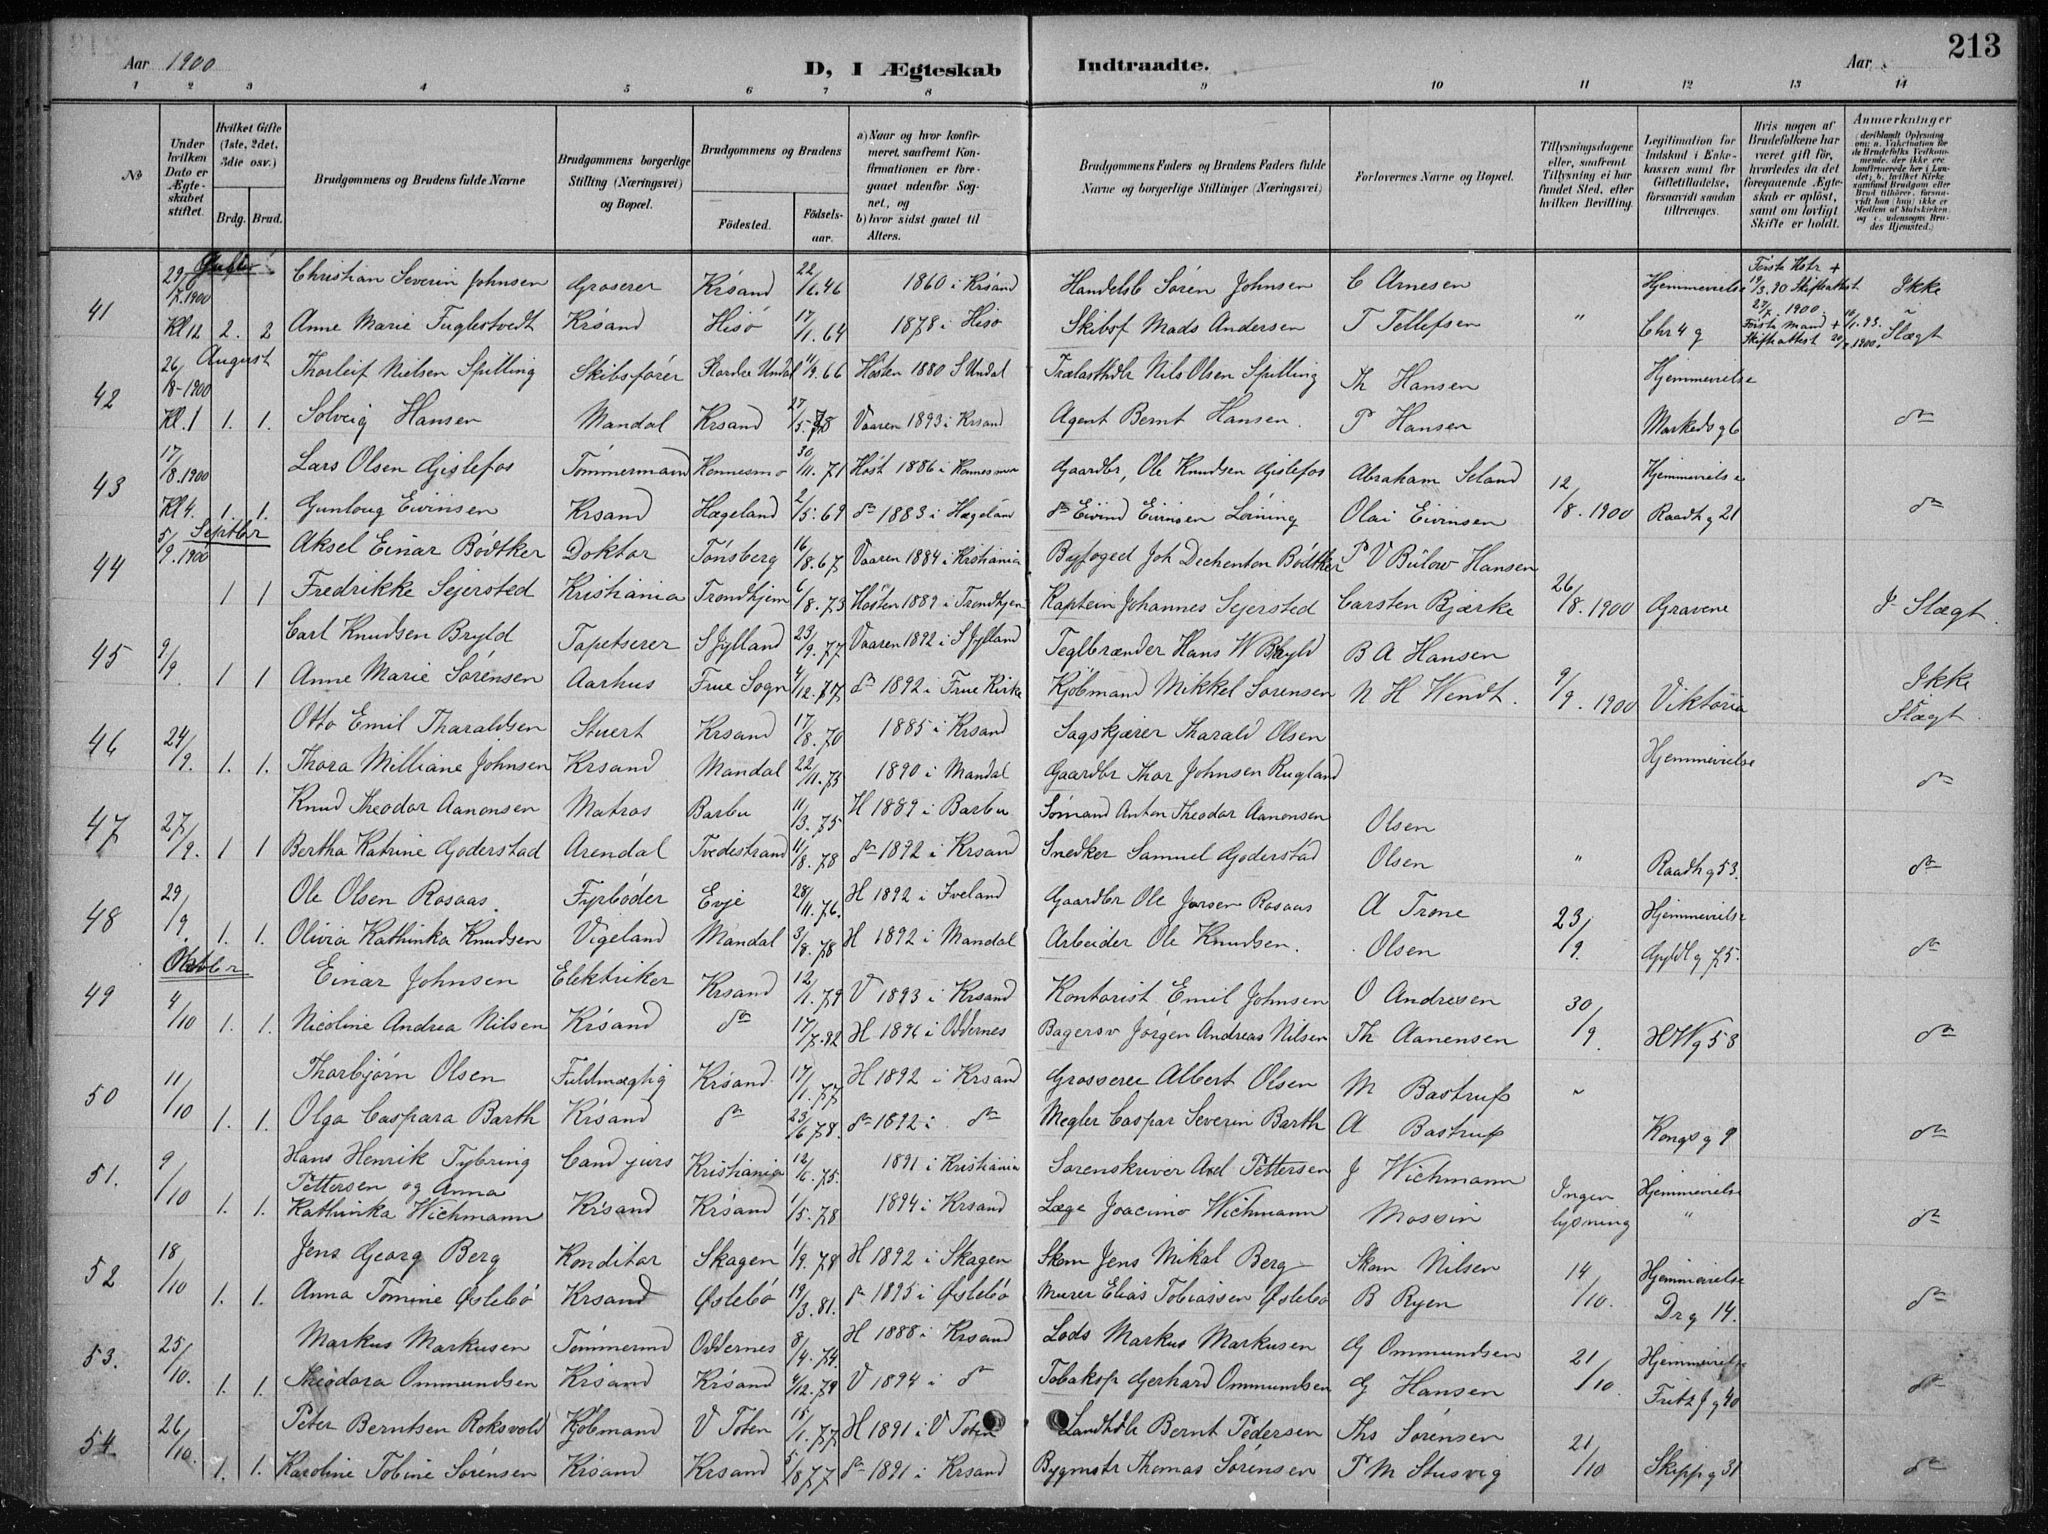 Aar 1900
D, I Ægteskab Indtraadte.
Aar
213
1 2 3 4 5 6 7 8 9 10 11 12 13 14
№ | Under hvilken Dato er Ægteskabet stiftet. | Hvilket Gifte (1ste, 2det, 3die osv.) Brdg. Brud. | Brudgommens og Brudens fulde Navne | Brudgommens borgerlige Stilling (Næringsvei) og Bopæl. | Brudgommens og Brudens Fødested. Fødselsaar. | a) Naar og hvor konfirmeret, saafremt Konfirmationen er foregaaet udenfor Sognet, og b) hvor sidst gaaet til Alters. | Brudgommens Faders og Brudens Faders fulde Navne og borgerlige Stillinger (Næringsvei) | Forlovernes Navne og Bopæl. | Tillysningsdagene eller, saafremt Tillysning ei har fundet Sted, efter hvilken Bevilling. | Legitimation for Indskud i Enkekassen samt for Giftetilladelse, forsaavidt saadan tiltrænges. | Hvis nogen af Brudefolkene har været gift før, hvorledes da det foregaaende Ægteskab er opløst, samt om lovligt Skifte er holdt. | Anmærkninger
29/7.1900 Christian Severin Johnsen Groserer Krsand 22/6.46 1860 i Krsand Handelsb Søren Johnsen C Arnesen Hjemmevielse Første Hstr + 19/3.90 Skifteattest 27/7.1900 Ikke
41 Kl 12 2. 2 Anne Marie Fuglestvedt Krsand Hisø 17/1.64 1878 i Hisø Skibsf Mads Andersen T Tellefsen " Chr 4 g Første Mand + 10/1.93. Skifteattest 20/7 1900. Slægt
August
26/8-1900 Thorleif Nielsen Spilling Skibsfører Nordre Undal 11/9.66 Høsten 1880 S Undal Trælasthdlr Nils Olsen Spilling Th Hansen Hjemmevielse
42 Kl.1 1. 1. Solveig Hansen Mandal Krsand 27/5.78 Vaaren 1893 i Krsand Agent Bernt Hansen. P Hansen Markeds g 6 do
17/8.1900 Lars Olsen Gislefos Tømmermand Konnesmo 30/11.71 Høst 1886 i Konnesmo Gaardbr, Ole Knudsen Gislefos Abraham Seland 12/8.1900 Hjemmevielse
43 Kl 4. 1. 1. Gunloug Eivinsen Krsand Hægeland 2/5.69 do 1883 i Hægeland do Eivind Eivinsen Løining Olai Eivinsen Raadh g 21 do
Septbr
5/9.1900 Aksel Einar Bødtker Doktor Tønsberg 16/8.67 Vaaren 1884 i Kristiania Byfoged Joh Dechenton Bødtker P V Bülow Hansen
44 1 1 Fredrikke Sejersted Kristiania Trondhjem 6/8.73 Høsten 1889 i Trondhjem Kaptein Johannes Sejersted Carsten Bjærke 26/8.1900 Gravene J Slægt.
Carl Knudsen Bryld Tapetserer S Jylland 23/9.77 Vaaren 1892 i S Jylland Teglbrænder Hans W Bryld B A Hansen
45 9/9. 1 1 Anne Marie Sørensen Aarhus Frue Sogn 4/12.77 do 1892 i Frue Kirke Kjøbmand Mikkel Sørensen N H Wendt. 9/9.1900 Viktoria Ikke Slægt.
Otto Emil Tharaldsen Stuert Krsand 17/8.70 1885 i Krsand Sagskjærer Tharald Olsen
46 24/9. 1. 1. Thora Milliane Johnsen Krsand Mandal 22/11.73 1890 i Mandal Gaardbr Thor Johnsen Rugland Hjemmevielse do
Knud Theodor Aanonsen Matros Barbu 11/3.75 H 1889 i Barbu Sømand Anton Theodor Aanonsen Olsen
47 27/9. 1 1 Bertha Katrine Goderstad Arendal Tvedestrand 11/8.78 do 1892 i Krsand Snedker Samuel Goderstad Olsen " Raadh g 53. do
29/9 Ole Olsen Rosaas. Fyrbøder Evje 28/11.76. H 1892 i Iveland Gaardbr Ole Jorsen Rosaas A Trone 23/9. Hjemmevielse
48 1. 1. Olivia Kathinka Knudsen Vigeland Mandal 3/8.78 H 1892 i Mandal Arbeider Ole Knudsen. Olsen Gyldl g 75. do
Oktober
Einar Johnsen Elektriker Krsand 12/1.79 V 1893 i Krsand Kontorist Emil Johnsen O Andresen 30/9.
49 4/10 1. 1. Nicoline Andrea Nilsen Krsand do 17/7.82 H 1896 i Oddernes Bagersv Jørgen Andreas Nilsen Th Aanensen H W g 53 do
Thorbjørn Olsen Fuldmægtig Krsand 17/1.77 H 1892 i Krsand Grosserer Albert Olsen M Bastrup "
50 11/10 1. 1. Olga Caspara Barth Krsand do 23/6.78. do 1892 i do Megler Caspar Severin Barth A Bastrup Kongs g 9 do
Hans Henrik Tybring Cand jurs Kristiania 12/6.75. 1891 i Kristiania Sorenskriver Axel Pettersen J Wichmann Ingen lysning Hjemmevielse
51. 9/10 1. 1. Pettersen og Anna Kathinka Wichmann Krsand Krsand 1/5.78 1894 i Krsand Læge Joacimo Wichmann Mossin " do
Jens Georg Berg Konditor Skagen 1/9.78 H 1892 i Skagen Skom Jens Mikal Berg Skom Nilsen 14/10. Hjemmevielse
52 18/10 1. 1. Anna Tomine Øslebø Krsand Øslebø 19/3.81. do 1895 i Øslebø Murer Elias Tobiassen Øslebø B Ryen Dr g 14. do
Markus Markusen Tømmermd Oddernes 8/4.74. H 1888 i Krsand Lods Markus Markusen G Ommundsen 21/10. Hjemmevielse
53. 25/10. 1. 1. Theodora Ommundsen Krsand Krsand 4/12.79 V 1894 i do Tobakop Gerhard Ommundsen G Hansen Fritz J g 40 do
Peter Berntsen Roksvold Kjøbmand V Toten 15/1.77 H 1891 i V Toten Landhdlr Bernt Pedersen Ths Sørensen 21/10
54 26/10. 1. 1. Karoline Tobine Sørensen Krsand Krsand 5/8.77 do 1891 i Krsand Bygmstr Thomas Sørensen P M Stusvig Skipp g 31 do